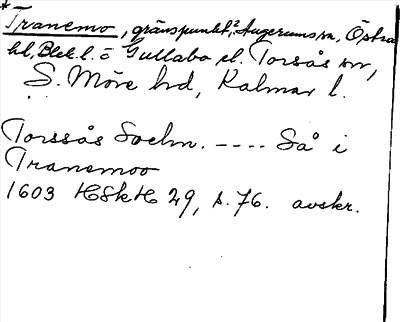 *Tranemo, gränspunkt, Augerums sn, Östra
hd, Blek. l. o Gullabo el. Torsås sn,
S. Möre hd, Kalmar l.
Torssås Sochn. ---- Så i
Tranemoo
1603 HSkH 29, s. 76. avskr.